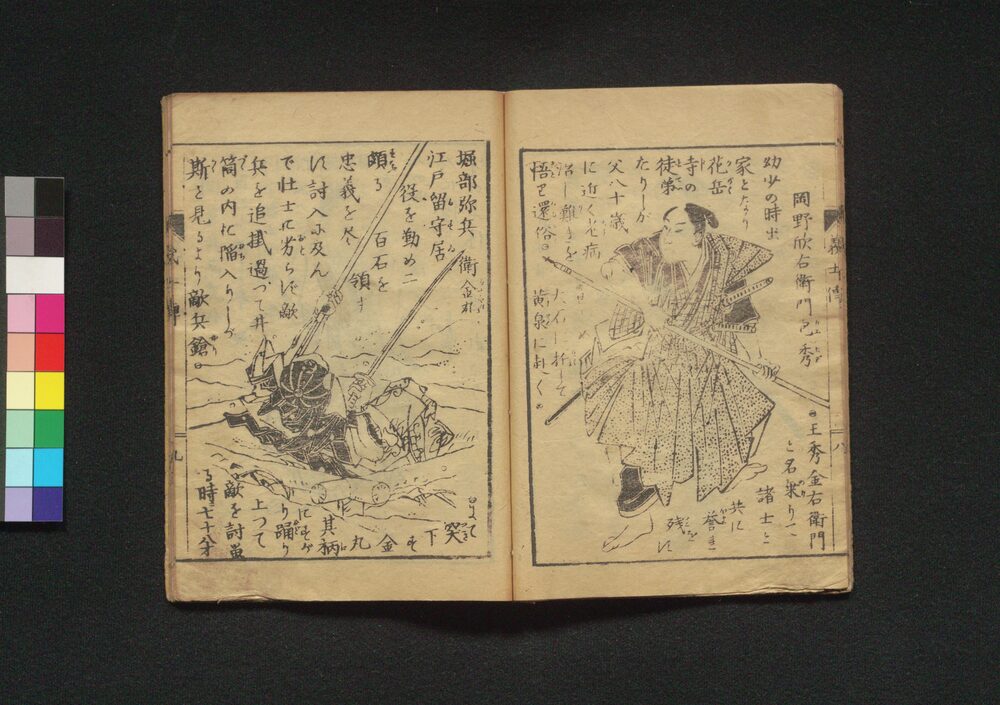 岡野欣右衛門包秀
幼少の時出
家となり
花岳
寺の
徒弟
たりしが
父八十歳
に近く老病
治し難きを
悟り還俗
黄泉に赴く
王秀金右衛門
と名乗り
諸士と
共に
誉を
残す
義士傳
八
堀部弥兵衛金丸
江戸留守居
役を勤め二
百石を領す
頗る
忠義を尽
に討入に及ん
で壮士に劣らず敵
兵を追掛過つて井
筒の内に陥入りしが
斯と見るより敵兵鎗
突
下す
金
丸
其柄
にすがり踊り
上つて
敵を討
る時七十八才
九